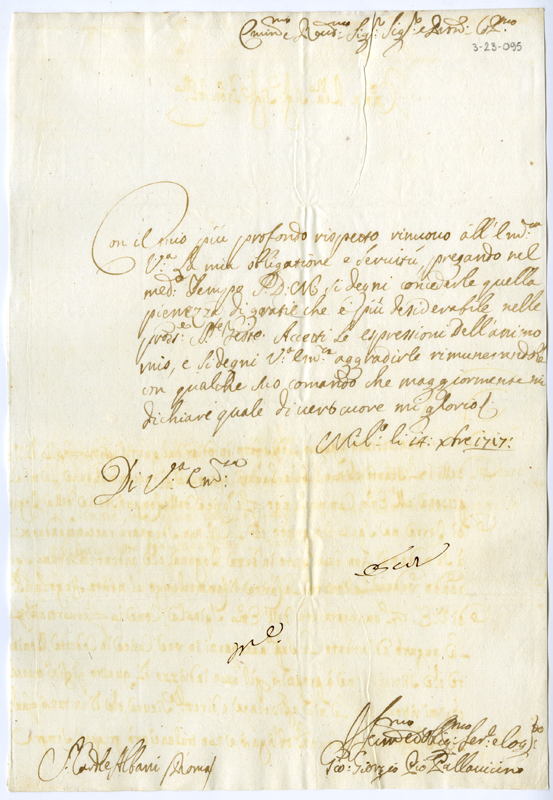 Emin.mo e Reud.mo Sig.r Sig.r e Pron: Col.mo
3-23-095
Con il mio più profondo rispetto rinuouo all'Em.za
V.ra la mia obligatione e seruitù, pregando nel
med.o tempo S.D.M. si degni concederle quella
pienezza di gratie che è più desiderabile nelle
pross.e S.te feste. Accetti le espressioni dell'animo
mio, e si degni V.ra Em.za aggradirle rimunerandole
con qualche suo comando che maggiormente mi
dichiare quale di uero cuore mi glorio
Mil.o li 14: Xbre 1717:
Di V.ra Em.za
S.r Card.le Albani (Roma)
Gio: Giorgio Pallauicino